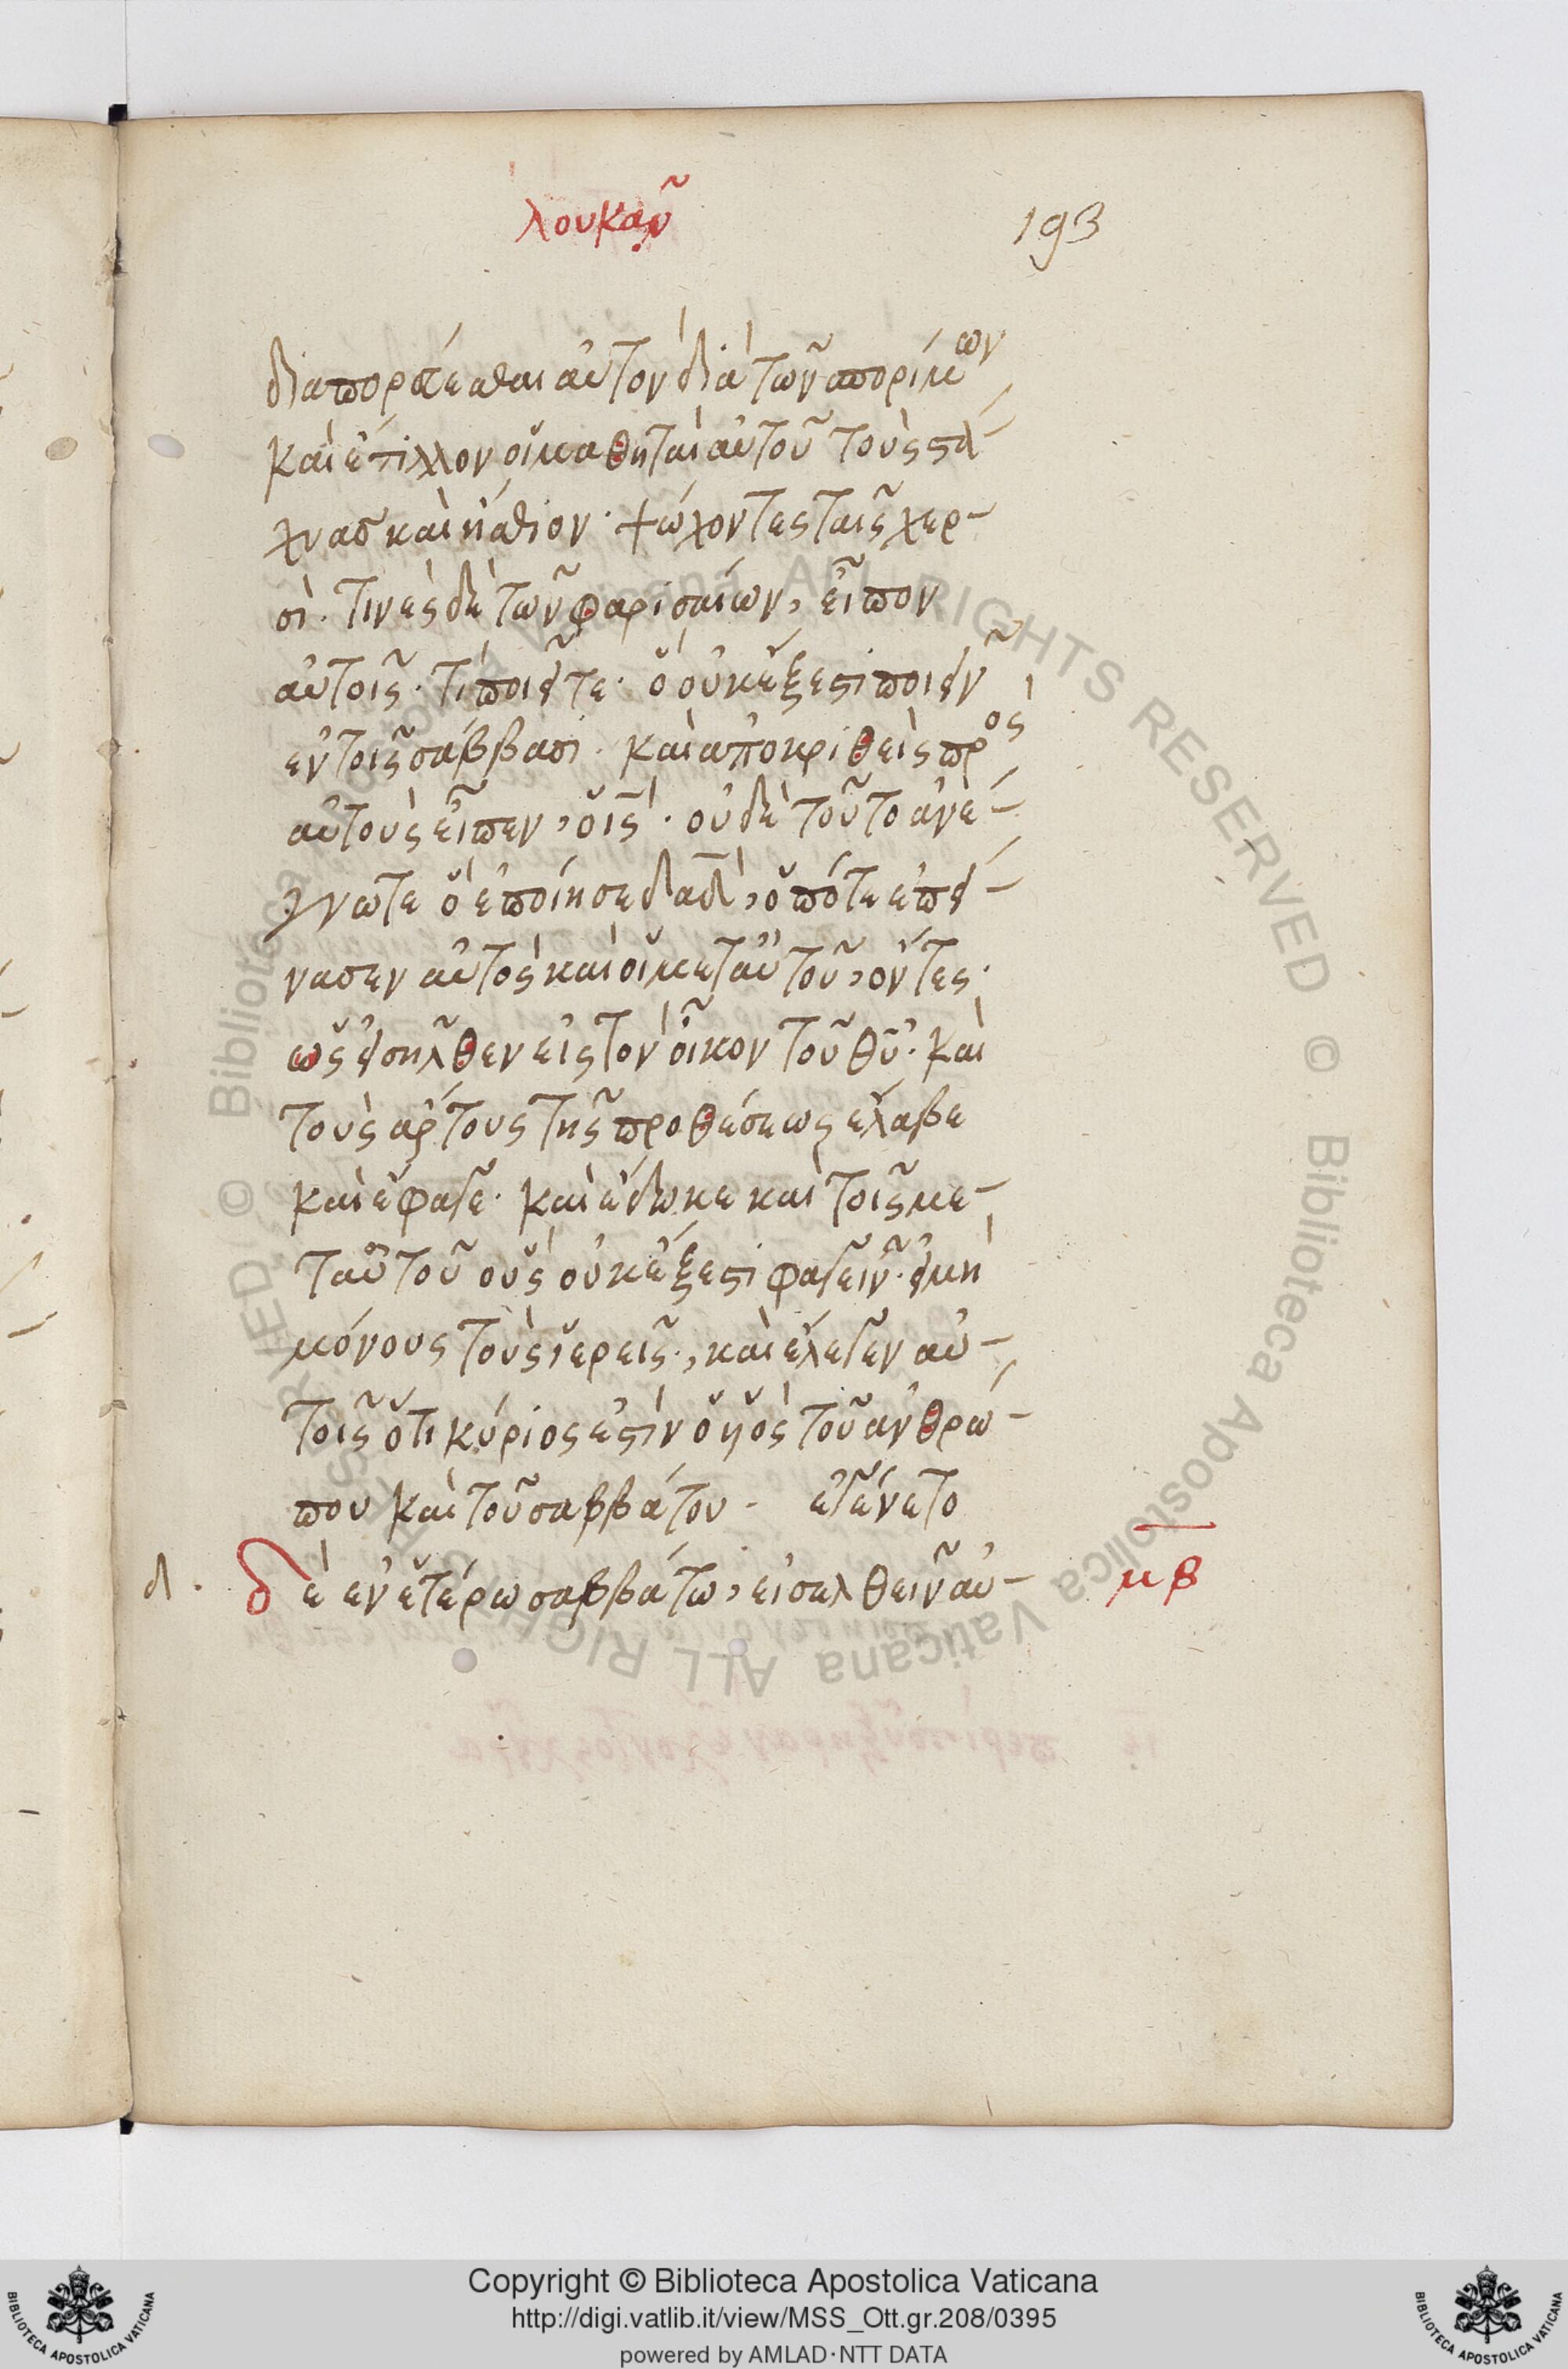 λουκᾶν
193
διαπορεύεσθαι αὐτὸν διὰ τῶν σπορίμων
καὶ ἔτιλλον οἱ μαθηταὶ αὐτοῦ τοὺς στά-
χυας καὶ ἤσθιον· ψώχοντες ταῖς χερ-
σί· τινὲς δὲ τῶν φαρισαίων, εἶπον
αὐτοῖς· τί ποιεῖτε· ὃ οὐκ ἔξεστι ποιεῖν
ἐν τοῖς σάββασι· καὶ ἀποκριθεὶς πρὸς
αὐτοὺς εἶπεν, ὁ ἰς̄· οὐδὲ τοῦτο ἀνέ-
γνωτε ὃ ἐποίησε δαδ̄, ὁπότε ἐπεί-
νασεν αὐτὸς καὶ οἱ μετ' αὐτοῦ, ὄντες·
ὡς εἰσῆλθεν εἰς τὸν οἶκον τοῦ θῡ· καὶ
τοὺς ἄρτους τῆς προθέσεως ἔλαβε
καὶ ἔφαγε· καὶ ἔδωκε καὶ τοῖς με-
τ' αὐτοῦ οὓς οὐκ ἔξεστι φαγεῖν· εἰ μὴ
μόνους τοὺς ἱερεῖς·, καὶ ἔλεγεν αὐ-
τοῖς ὅτι κύριός ἐστιν ὁ υἱὸς τοῦ ἀνθρώ-
που καὶ τοῦ σαββάτου· ἐγένετο
δ. δὲ ἐν ἑτέρω σαββάτω, εἰσελθεῖν αὐ- μβ
Copyright © Biblioteca Apostolica Vaticana
http://digi.vatlib.it/view/MSS_Ott.gr.208/0395
powered by AMLAD·NTT DATA
BIBLIOTECA APOSTOLICA VATICANA
BIBLIOTECA APOSTOLICA VATICANA
© Biblioteca Apostolica Vaticana ALL RIGHTS RESERVED © Biblioteca Apostolica Vaticana ALL RIGHTS RESERVED